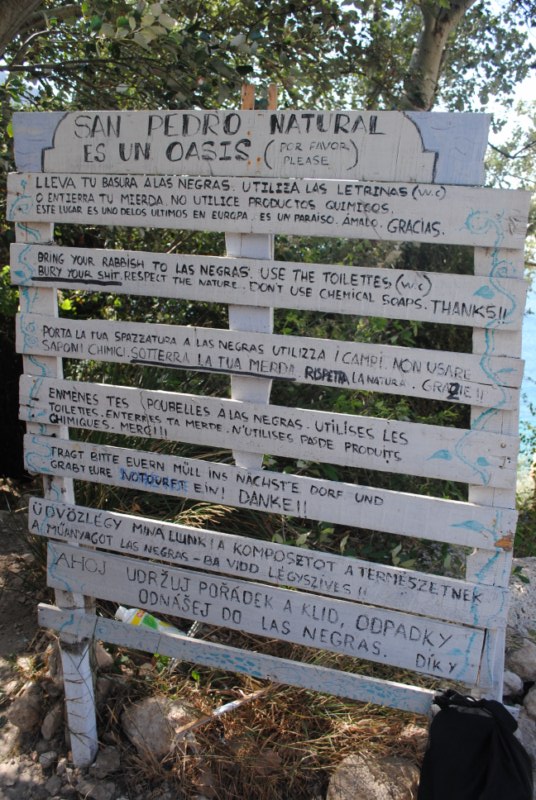 SAN PEDRO NATURAL
ES UN OASIS (POR FAVOR
PLEASE)
LLEVA TU BASURA A LAS NEGRAS. UTILIZA LAS LETRINAS (W.C)
O ENTIERRA TU MIERDA. NO UTILICE PRODUCTOS QUIMICOS.
ESTE LUGAR ES UNO DE LOS ULTIMOS EN EUROPA. ES UN PARAISO. ÁMALO. GRACIAS.
BRING YOUR RABBISH TO LAS NEGRAS. USE THE TOILETTES (W.C)
BURY YOUR SHIT. RESPECT THE NATURE. DON'T USE CHEMICAL SOAPS. THANKS!!
PORTA LA TUA SPAZZATURA A LAS NEGRAS UTILIZZA I CAMPI. NON USARE
SAPONI CHIMICI. SOTTERRA LA TUA MERDA. RISPETTA LA NATURA. GRAZIE!!
ENMÈNES TES POUBELLES A LAS NEGRAS. UTILISES LES
TOILETTES. ENTERRES TA MERDE. N'UTILISES PAS DE PRODUITS
CHIMIQUES. MERCI!!!
TRAGT BITTE EUERN MÜLL INS NÄCHSTE DORF UND
GRABT EURE EIN! DANKE!!
ÜDVÖZLÉGY MINÁLUNK! A KOMPOSZTOT A TERMÉSZETNEK
A MŰANYAGOT LAS NEGRAS-BA VIDD LÉGYSZIVES!!
AHOJ UDRŽUJ POŘÁDEK A KLID, ODPADKY
ODNÁŠEJ DO LAS NEGRAS. DÍKY